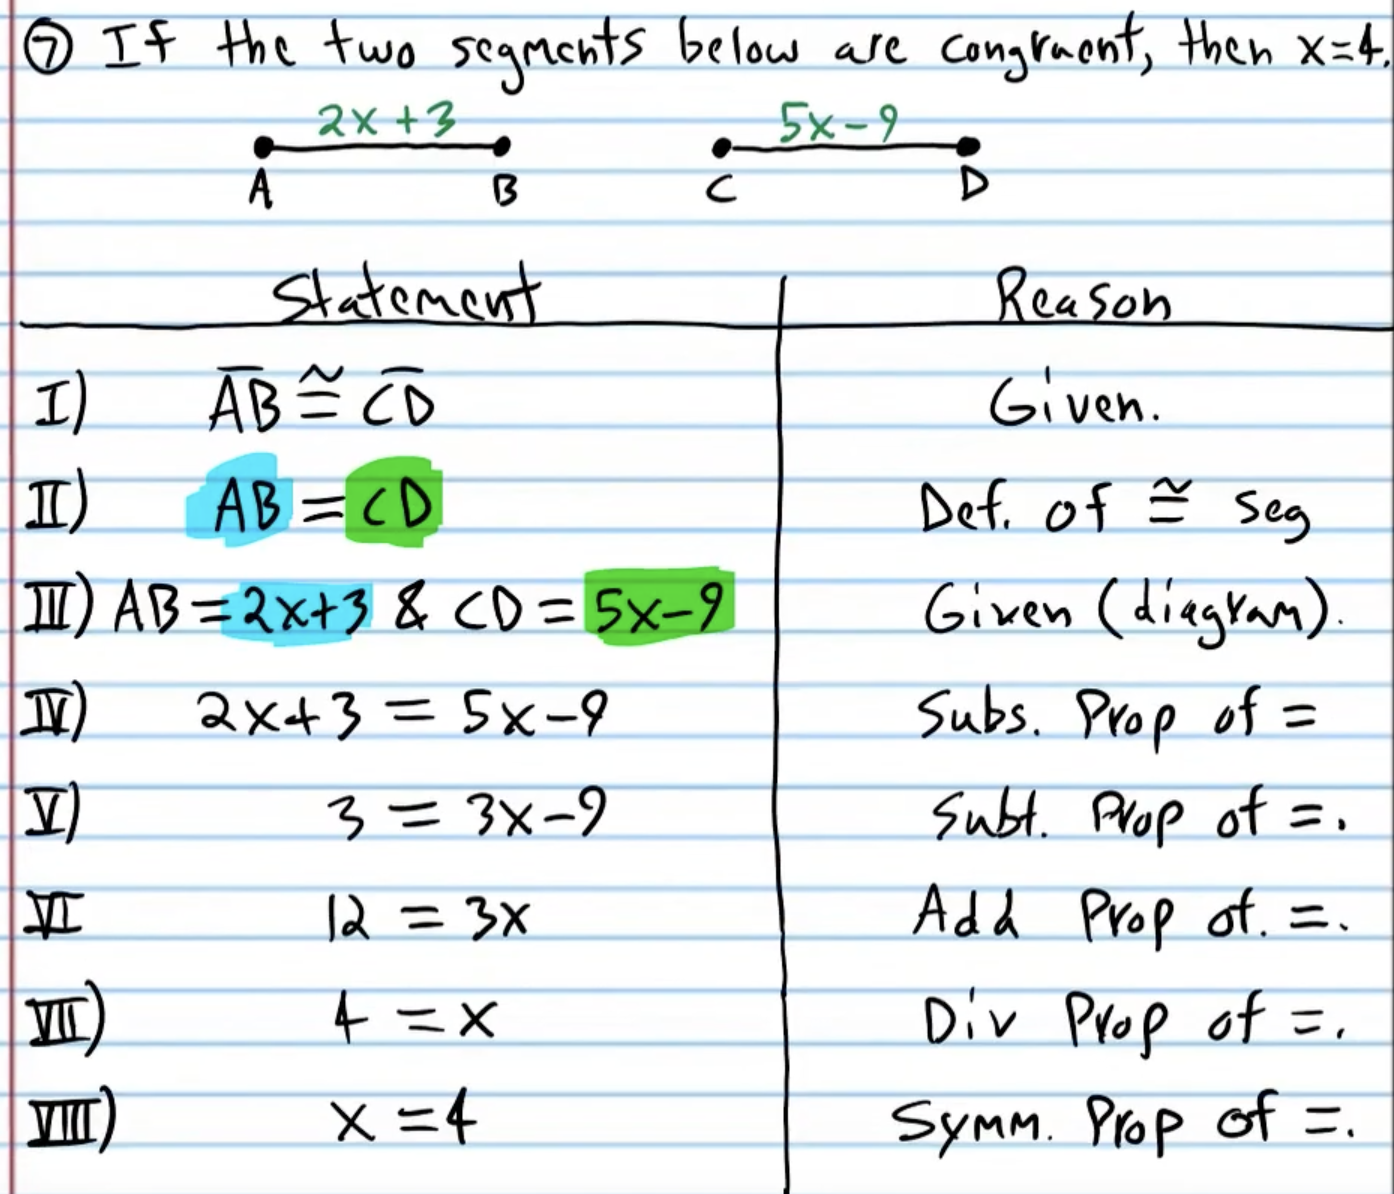 ⑦ If the two segments below are congruent, then x=4.
2x+3 5x-9
A B C D
Statement Reason
I) A̅B̅ ≅ C̅D̅ Given.
II) AB = CD Def. of ≅ seg
III) AB = 2x+3 & CD = 5x-9 Given (diagram).
IV) 2x+3 = 5x-9 Subs. Prop of =
V) 3 = 3x-9 Subt. Prop of =.
VI 12 = 3x Add Prop of. =.
VII) 4 = x Div Prop of =.
VIII) x = 4 Symm. Prop of =.